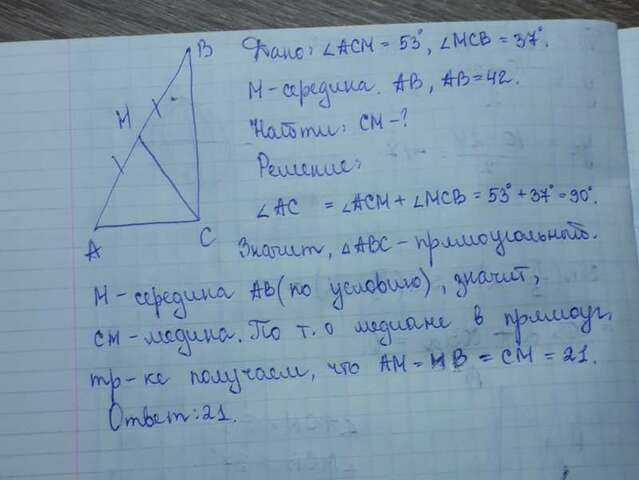 B
Дано: ∠ACM = 53°, ∠MCB = 37°.
M
M-середина. AB, AB = 42.
Найти: CM-?
Решение:
∠AC = ∠ACM + ∠MCB = 53° + 37° = 90°.
A
C
Значит, △ABC - прямоугольный.
M-середина AB (по условию), значит,
CM-медина. По т. о медиане в прямоуг,
тр-ке получаем, что AM = MB = CM = 21.
Ответ: 21.